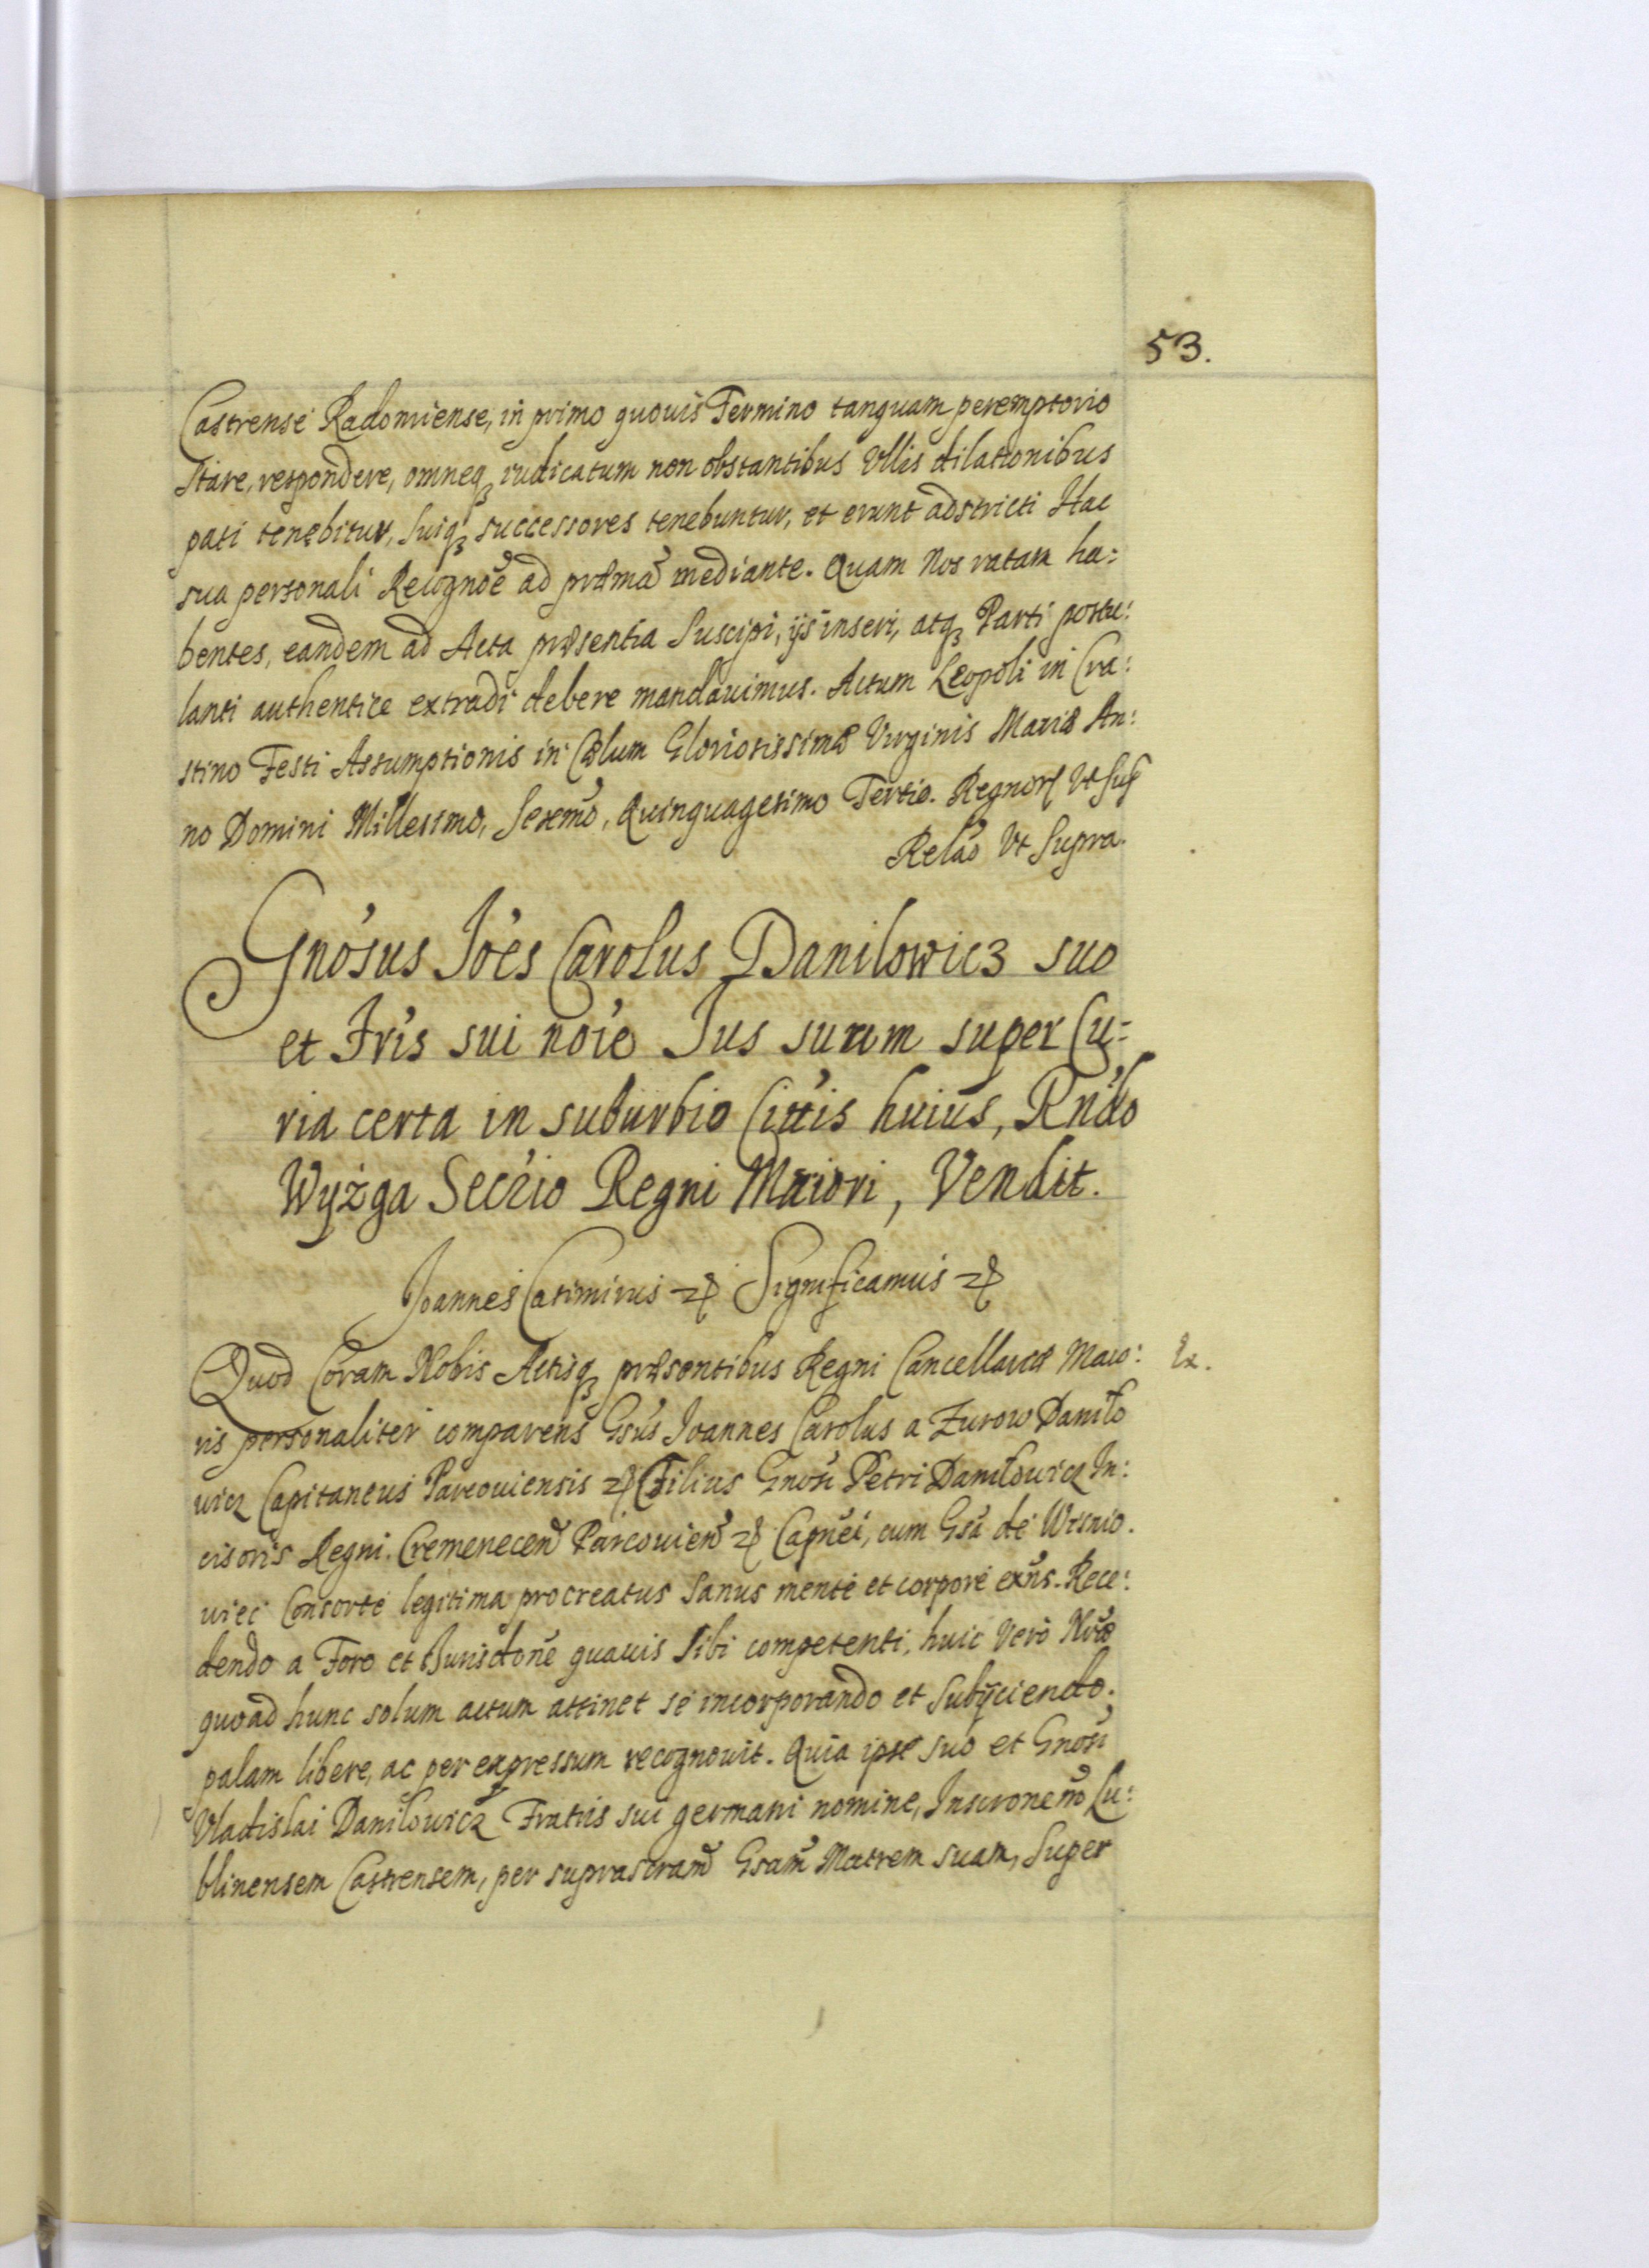 53.
Castrense Radomiense, in primo quouis Termino tanquam peremptorio
stare, respondere, omneq₃ iudicatum non obstantibus Ullis dilationibus
pati tenebitur, suiq₃ successores tenebuntur, et erunt adstricti Hac
sua personali Recognōe ad præmā mediante. Quam Nos ratam ha:
bentes, eandem ad Acta præsentia Suscipi, ijs inseri, atq₃ Parti postu:
lanti authentice extradi debere mandauimus. Actum Leopoli in Cra:
stino Festi Assumptionis in Cælum Gloriosissimæ Virginis Mariæ An:
no Domini Millesimo, Sexcmo, Quinquagesimo Tertio. Regnor Vt Sup
Relao Vt Supra.
Gnosus Joes Carolus Danilowicz suo
et Fris sui noie Jus suum super Cu:
ria certa in suburbio Cittis huius, Rndo
Wyżga Secrio Regni Maiori, Vendit.
Joannes Casimirus etc Significamus etc
Quod Coram Nobis Actisq₃ præsentibus Regni Cancellariæ Maio: Ex.
ris personaliter comparens Gsus Joannes Carolus a Zurow Daniło
wicz Capitaneus Parcouiensis etc Filius Gnosi Petri Daniłowicz In:
cisoris Regni. Cremenecen Parcouien etc Capnei, cum Gsa de Wisnio.
wiec Consorte legitima procreatus Sanus mente et corpore exns. Rece:
dendo a Foro et Jurisdone quauis Sibi competenti, huic Vero Nræ
quoad hunc solum actum attinet se incorporando et Subijciendo.
palam libere, ac per expressum recognouit. Quia ipse suo et Gnosi
Vladislai Daniłowicz Fratris sui germani nomine, Inscronem Lu:
blinensem Castrensem, per suprascram Gsam Matrem suam, Super